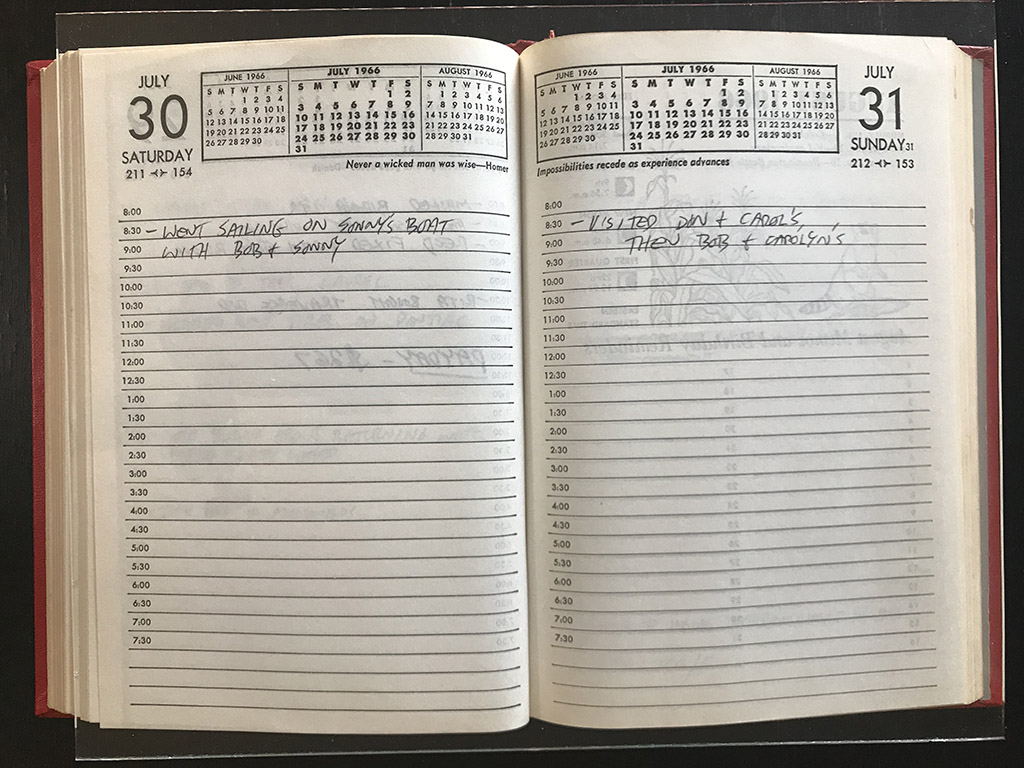 JULY
30
SATURDAY
211 154
JUNE 1966
S M T W T F S
1 2 3 4
5 6 7 8 9 10 11
12 13 14 15 16 17 18
19 20 21 22 23 24 25
26 27 28 29 30
JULY 1966
S M T W T F S
1 2
3 4 5 6 7 8 9
10 11 12 13 14 15 16
17 18 19 20 21 22 23
24 25 26 27 28 29 30
31
AUGUST 1966
S M T W T F S
1 2 3 4 5 6
7 8 9 10 11 12 13
14 15 16 17 18 19 20
21 22 23 24 25 26 27
28 29 30 31
Never a wicked man was wise—Homer
8:00
8:30 – WENT SAILING ON SONNY'S BOAT
9:00 WITH BOB & SONNY
9:30
10:00
10:30
11:00
11:30
12:00
12:30
1:00
1:30
2:00
2:30
3:00
3:30
4:00
4:30
5:00
5:30
6:00
6:30
7:00
7:30
JUNE 1966
S M T W T F S
1 2 3 4
5 6 7 8 9 10 11
12 13 14 15 16 17 18
19 20 21 22 23 24 25
26 27 28 29 30
JULY 1966
S M T W T F S
1 2
3 4 5 6 7 8 9
10 11 12 13 14 15 16
17 18 19 20 21 22 23
24 25 26 27 28 29 30
31
AUGUST 1966
S M T W T F S
1 2 3 4 5 6
7 8 9 10 11 12 13
14 15 16 17 18 19 20
21 22 23 24 25 26 27
28 29 30 31
JULY
31
SUNDAY 31
212 153
Impossibilities recede as experience advances
8:00
8:30 – VISITED DON & CAROL'S,
9:00 THEN BOB & CAROLYN'S
9:30
10:00
10:30
11:00
11:30
12:00
12:30
1:00
1:30
2:00
2:30
3:00
3:30
4:00
4:30
5:00
5:30
6:00
6:30
7:00
7:30